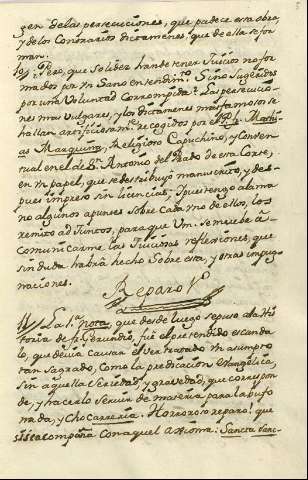 zen de las persecuciones, que padece esta obra,
y de los Contrarios dictamenes, que de ella se for
man.
10// Pero, que Solidez han de tener Juicios no for
mados por un Sano entendim.to Sino Sugeridos
por una Voluntad Corrompida? Las persecucio
nes mas Vulgares, y los dictamenes mas famosos se
hallan artificiosam.te recogidos por el P. Fr. Mathi
as Marquina, Religioso Capuchino, y Conven
tual en el de S.n Antonio del Prado de esta Corte,
en un papel, que se destribuyó manuscrito, y des
pues impreso sin licencia. Y pues tengo a la ma
no algunos apuntes Sobre Cada uno de ellos, los
remito adjuntos, para que Um. se mueva à
Comunicarme las Juiciosas reflexiones, que
sin duda habrà hecho Sobre esta, y otras impug
naciones.
Reparo 1.º
11// La 1.ª nota, que desde luego se puso a la His
toria de fr. Gerundio, fué el pretendido escanda
lo, que devia causar el ver tratado un asumpto
tan Sagrado, Como la predicacion Evangelica,
sin aquella Seriedad, y gravedad, que correspon
de, y hacerlo Servir de materia para la bufo
nada, y Chocarreria. Horroroso reparo! que
si se acompaña Con aquel axioma: Sancta sanc-